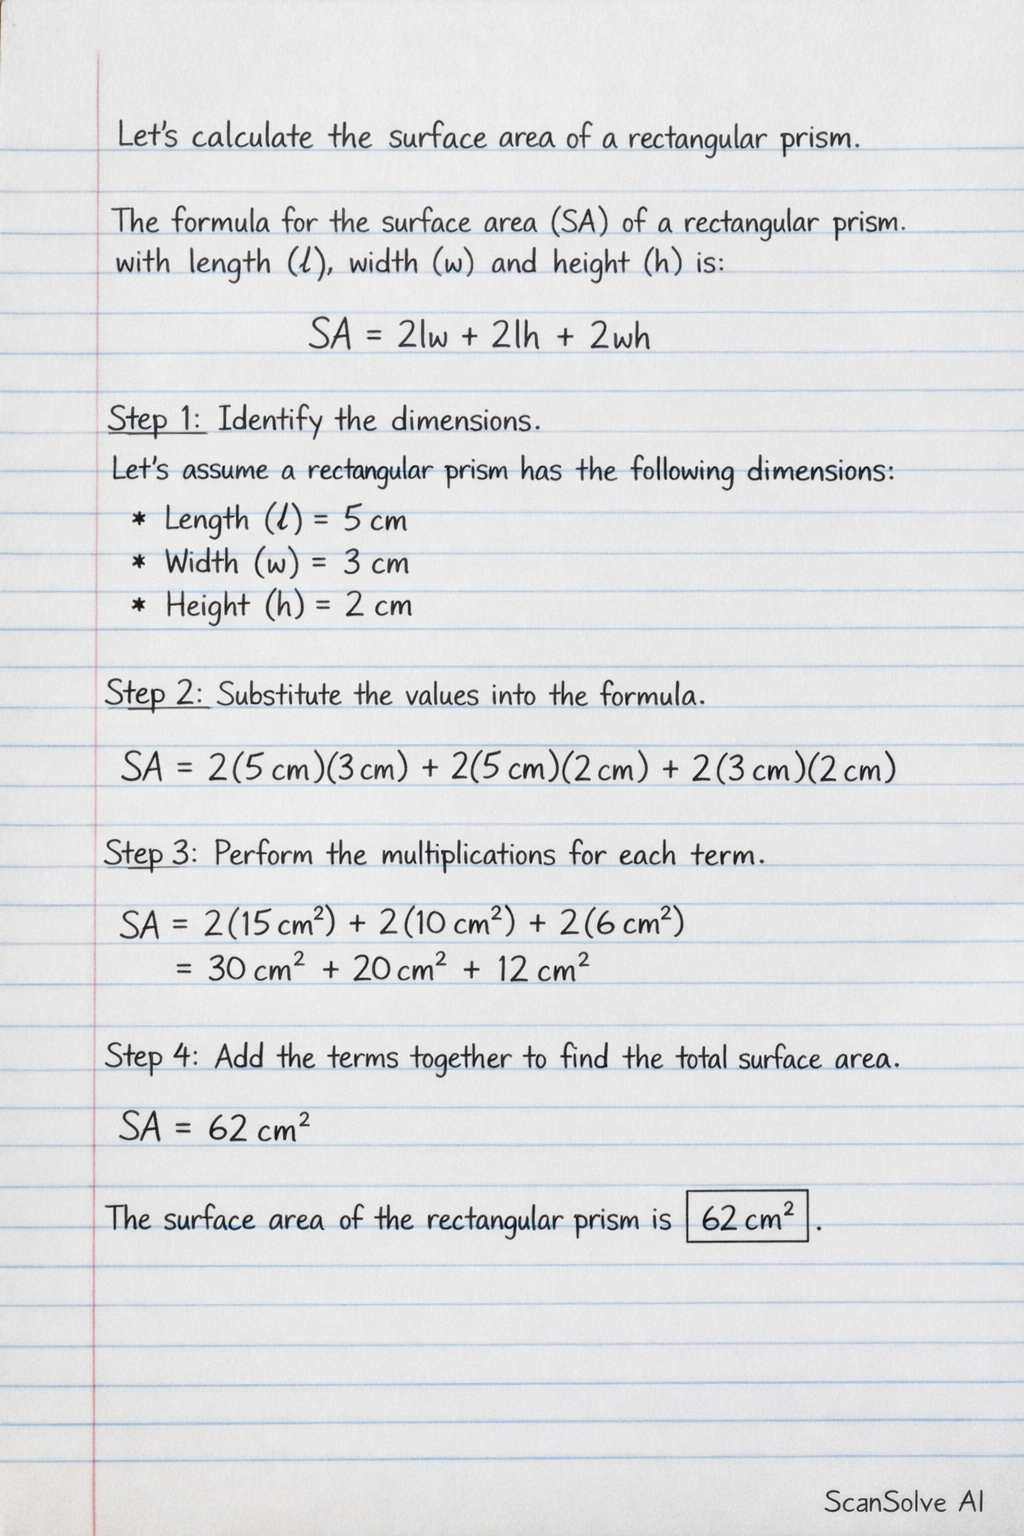 Let's calculate the surface area of a rectangular prism.
The formula for the surface area (SA) of a rectangular prism.
with length (l), width (w) and height (h) is:
SA = 2lw + 2lh + 2wh
Step 1: Identify the dimensions.
Let's assume a rectangular prism has the following dimensions:
* Length (l) = 5 cm
* Width (w) = 3 cm
* Height (h) = 2 cm
Step 2: Substitute the values into the formula.
SA = 2(5 cm)(3 cm) + 2(5 cm)(2 cm) + 2(3 cm)(2 cm)
Step 3: Perform the multiplications for each term.
SA = 2(15 cm²) + 2(10 cm²) + 2(6 cm²)
= 30 cm² + 20 cm² + 12 cm²
Step 4: Add the terms together to find the total surface area.
SA = 62 cm²
The surface area of the rectangular prism is 62 cm².
ScanSolve AI